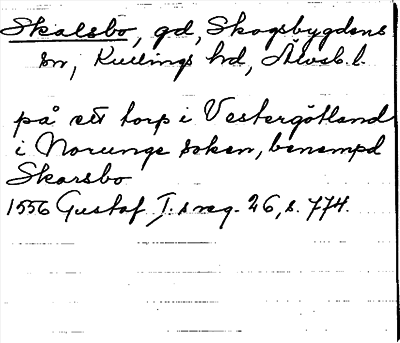 Skalsbo, gd, Skogsbygdens
sn, Kullings hd, Älvsb. l.
på ett torp i Vestergötland
i Norunge soken, benempd
Skarsbo
1556 Gustaf I:s reg. 26, s. 774.